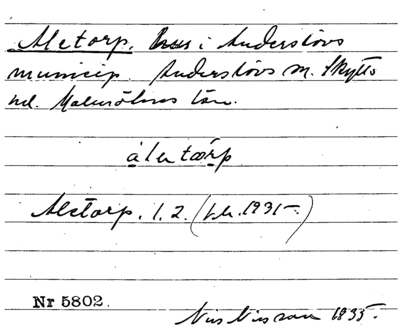 Aletorp, hus i Anderslövs
municip. Anderslövs sn. Skytts
hd. Malmöhus län.
álatoŕp
Aletorp. 1. 2. (Jr. 1931-.)
Nr 5802.
Nils Nilsson 1935.